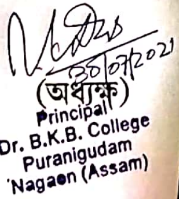 30/07/2021
(অধ্যক্ষ)
Principal
Dr. B.K.B. College
Puranigudam
Nagaon (Assam)